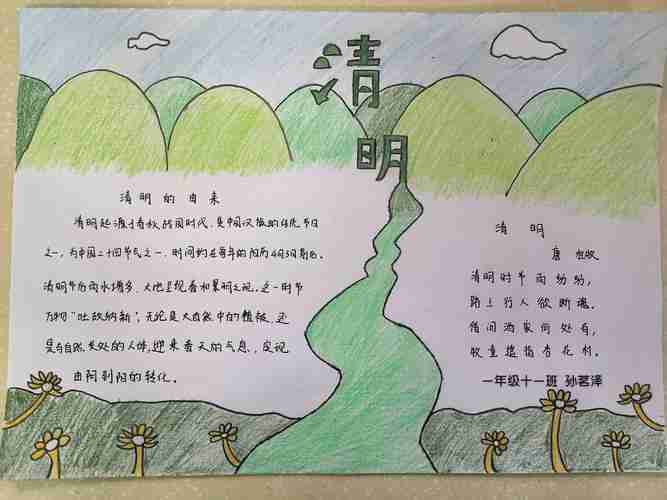 清明
清明的由来
清明起源于春秋战国时代,是中国汉族的传统节日
之一,为中国二十四节气之一,时间约在每年的阳历4月5日前后。
清明节后雨水增多,大地呈现春和景明之说。这一时节
万物“吐故纳新”,无论是大自然中的植被,还
是与自然共处的人体,迎来春天的气息,实现
由阴到阳的转化。
清明
唐 杜牧
清明时节雨纷纷,
路上行人欲断魂。
借问酒家何处有,
牧童遥指杏花村。
一年级十一班 孙茗泽